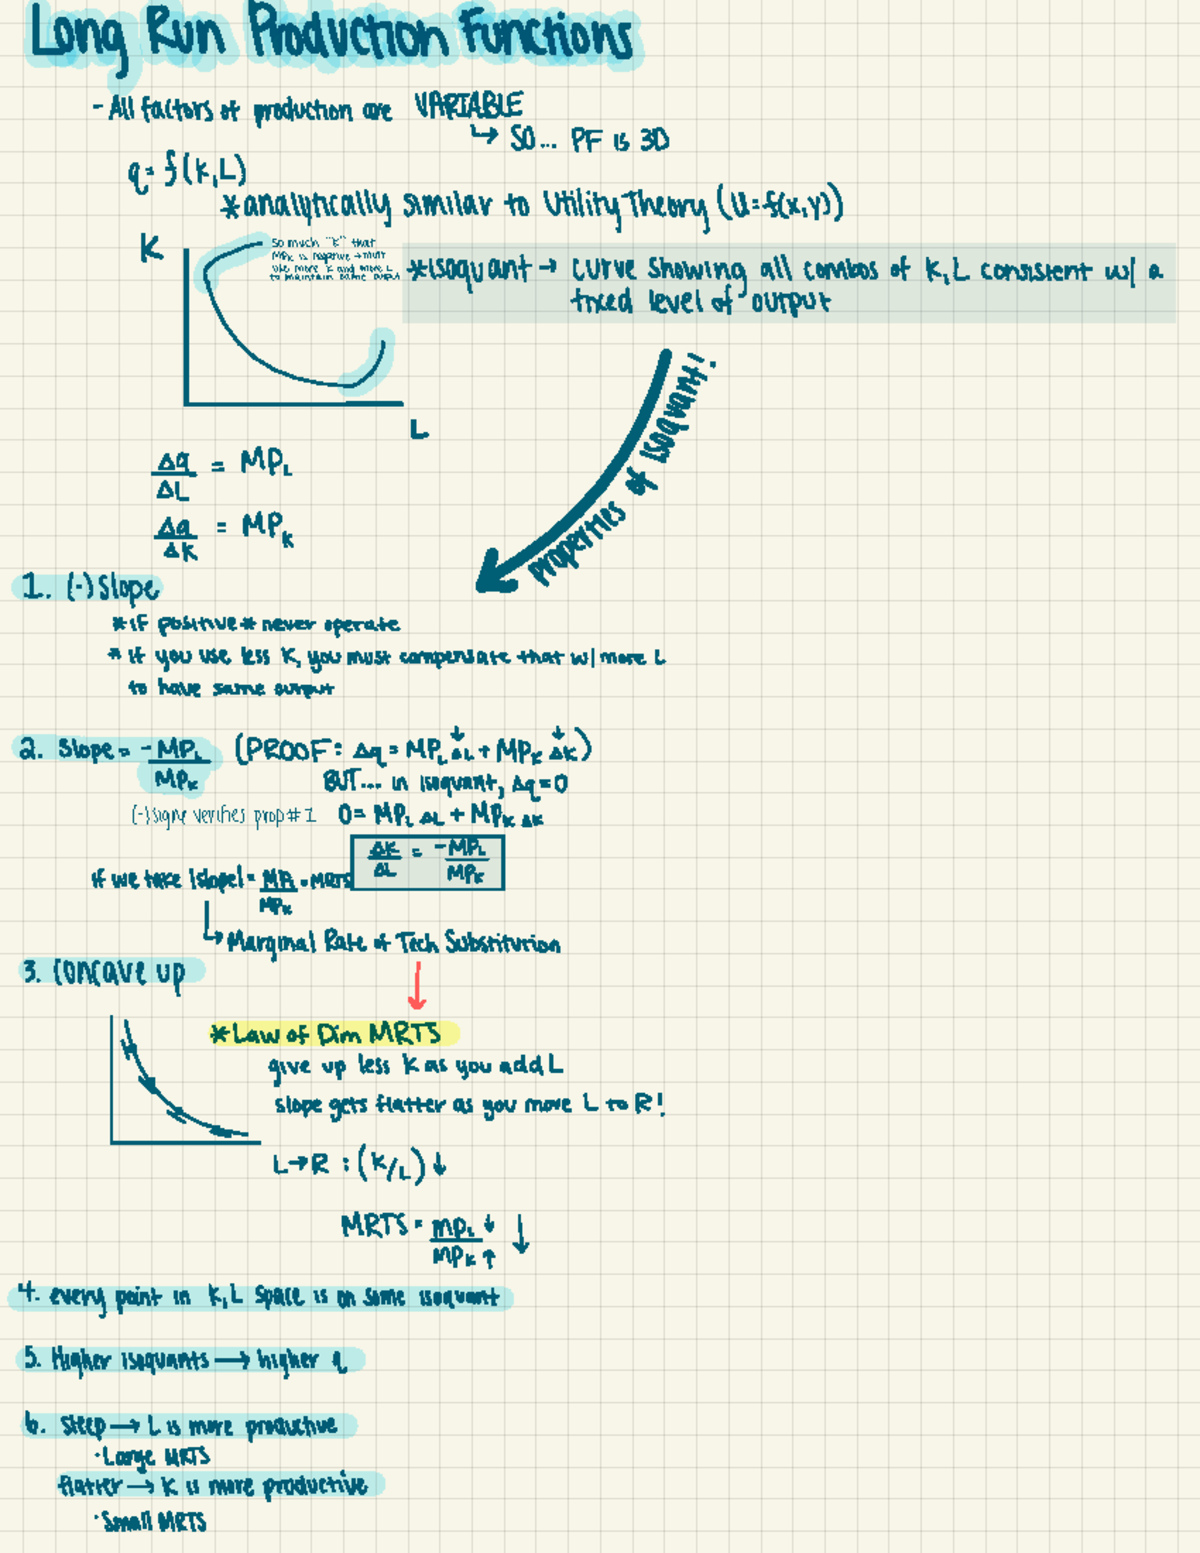 Long Run Production Functions
- All factors of production are VARIABLE
↳ SO... PF is 3D
q = f(K,L)
*analytically similar to Utility Theory (U=f(x,y))
K
So much "K" that
MPK is negative → must
use more K and more L
to maintain same output
*isoquant → curve showing all combos of K,L consistent w/ a
fixed level of output
L
properties of isoquant!
Δq/ΔL = MPL
Δq/ΔK = MPK
1. (-) Slope
*if positive* never operate
* if you use less K, you must compensate that w/ more L
to have same output
2. Slope = -MPL/MPK (PROOF: Δq = MPL ΔL + MPK ΔK)
BUT... in isoquant, Δq=0
(-) signe verifies prop #1 0 = MPL ΔL + MPK ΔK
ΔK/ΔL = -MPL/MPK
if we take |slope| = MPL/MPK = MRTS
↳ Marginal Rate of Tech Substitution
3. Concave up
*Law of Dim MRTS
give up less K as you add L
slope gets flatter as you move L to R!
L→R : (K/L) ↓
MRTS = MPL↓/MPK↑ ↓
4. every point in K,L space is on some isoquant
5. Higher isoquants → higher q
6. Steep → L is more productive
·Large MRTS
flatter → K is more productive
·Small MRTS